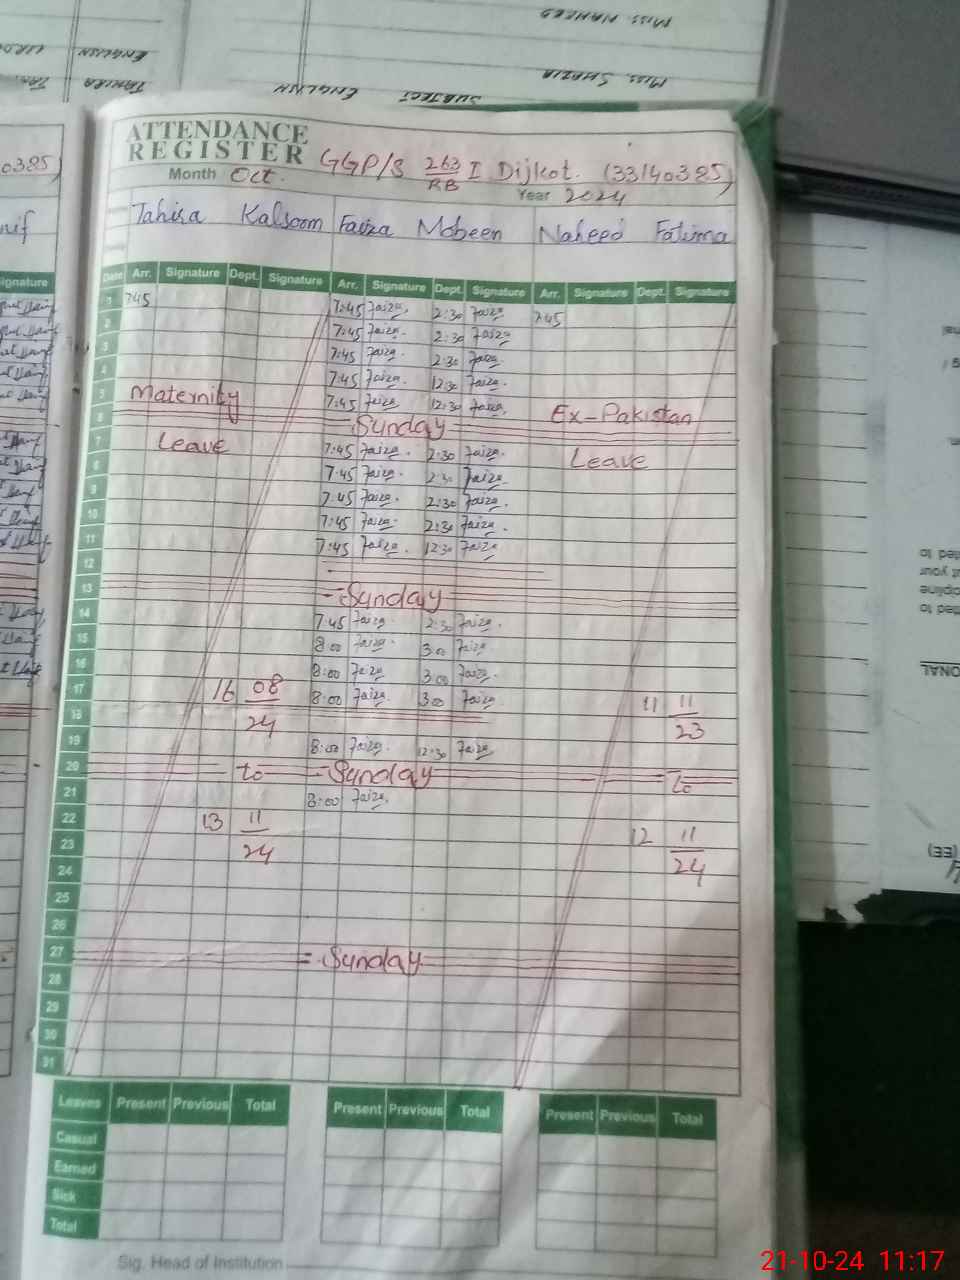 MISS. NAHEED
ENGLISH
MISS. SHAZIA
TAHIRA
ENGLISH
SUBJECT
ATTENDANCE
REGISTER
GGP/S 263/RB I Dijkot. (33140385)
Month Oct.
Year 2024
0385)
nif
Tahira Kalsoom Faiza Mobeen Naheed Fatima
Signature
Date Arr. Signature Dept. Signature Arr. Signature Dept. Signature Arr. Signature Dept. Signature
1 7:45 7:45 Faiza. 2:30 Faiza 7:45
2 7:45 Faiza. 2:30 Faiza
3 7:45 Faiza. 2:30 Faiza.
4 7:45 Faiza. 12:30 Faiza.
5 Maternity 7:45 Faiza 12:30 Faiza. Ex-Pakistan
6 Sunday
7 Leave 7:45 Faiza. 2:30 Faiza. Leave
8 7:45 Faiza. 2:30 Faiza.
9 7:45 Faiza. 2:30 Faiza.
10 7:45 Faiza. 2:30 Faiza.
11 7:45 Faiza. 12:30 Faiza
12
13 Sunday
14 7:45 Faiza. 2:30 Faiza.
15 8:00 Faiza. 3:00 Faiza.
16 8:00 Faiza 3:00 Faiza.
17 16 08/24 8:00 Faiza 3:00 Faiza. 11 11/23
18
19 8:00 Faiza. 12:30 Faiza
20 to Sunday to
21 8:00 Faiza.
22 13 11/24 12 11/24
23
24
25
26
27 = Sunday
28
29
30
31
Leaves Present Previous Total Present Previous Total Present Previous Total
Casual
Earned
Sick
Total
Sig. Head of Institution
(EE)
21-10-24 11:17